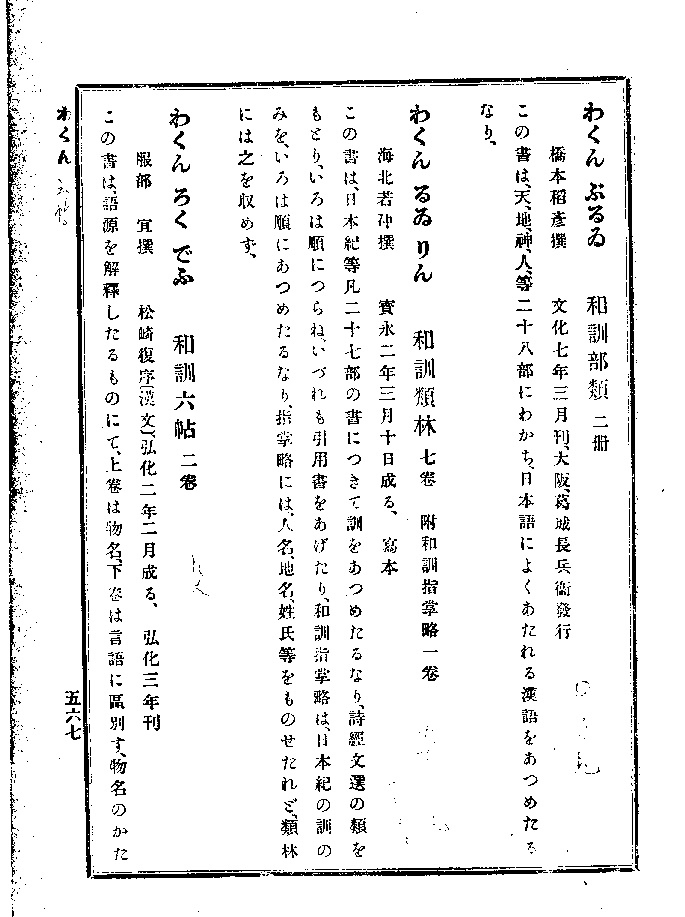 わくん ぶるゐ 和訓部類 二册
橋本稻彥撰 文化七年三月刊、大阪、葛城長兵衞發行
この書は、天、地、神、人、等二十八部にわかち、日本語によくあたれる漢語をあつめたる
なり、
わくん るゐ りん 和訓類林 七卷 附和訓指掌略一卷
海北若冲撰 寶永二年三月十日成る、 寫本
この書は、日本紀等凡二十七部の書につきて訓をあつめたるなり、詩經文選の類を
もとり、いろは順につらね、いづれも引用書をあげたり、和訓指掌略は、日本紀の訓の
みを、いろは順にあつめたるなり、指掌略には、人名、地名、姓氏等をものせたれど、類林
には之を收めず、
わくん ろく でふ 和訓六帖 二卷
服部 宜撰 松崎復序(漢文)、弘化二年二月成る、 弘化三年刊
この書は、語源を解釋したるものにて、上卷は物名、下卷は言語に區別す、物名のかた
わくん
五六七